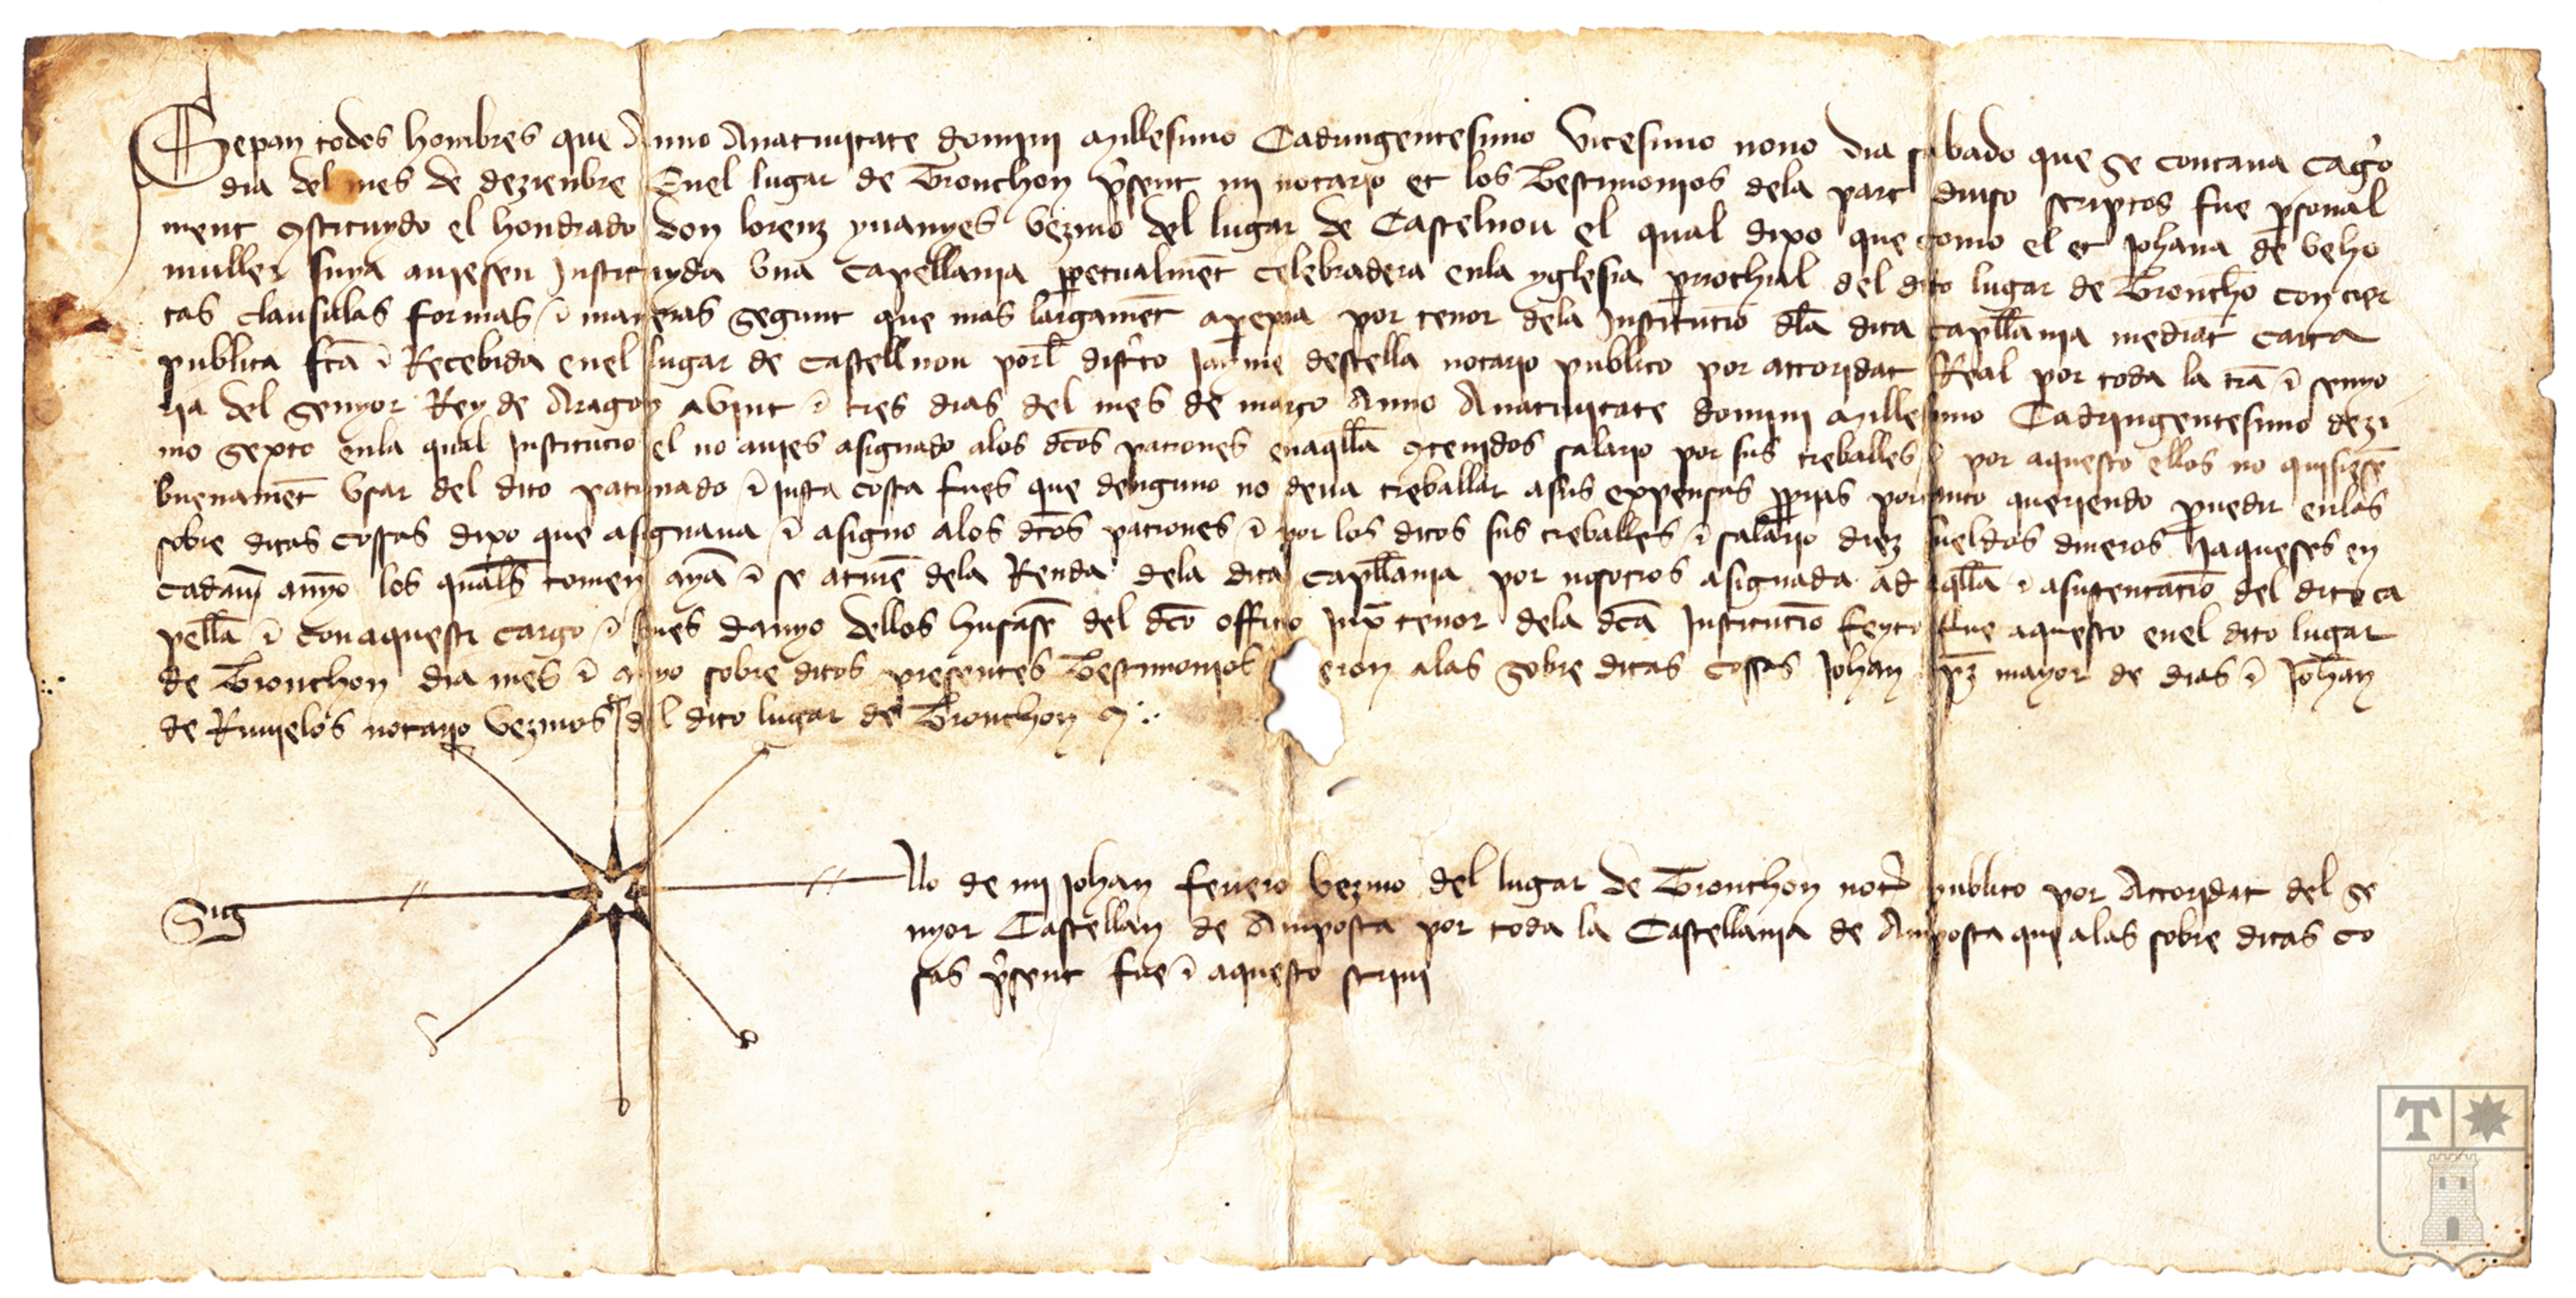 Sepan todos hombres que Anno Anatiuitate domini Millesimo Cadringentesimo Vicesimo nono dia sabado que se contaua
dia del mes de dezienbre Enel lugar de Tronchon p̃sent mi notario et los Testimonios dela part diuso scriptos fue p̃sonal
ment ꝯstituydo el hondrado don lorenz yuanyes vezino del lugar de Castelnou el qual dixo que como el et Johana de
muller suya auiesen Instituyda vna Capellania ꝑpetualmẽt celebradera enla yglesia ꝑrochial del dito lugar de Tronchõ con cier
tas clausulas formas ⁊ maneras segunt que mas largamẽt aparexia por tenor dela Institucio dl̃a dita capll̃ania mediãt carta
publica fcã ⁊ Recebida enel lugar de castellnou porl̃ discr̃to Jayme destella notario publico por attoridat Real por toda la trã ⁊ senyo
ria del senyor Rey de Aragon a vint ⁊ tres dias del mes de março Anno Anatiuitate domini Millesimo Cadringentesimo dezi
mo sexto enla qual Institucio el no auies asignado alos dc̃os patrones enaqll̃a ꝯtenidos salario por sus treballes ⁊ por aquesto ellos no quisiesẽ
buenamẽt vsar del dito patronado ⁊ justa cosa fues que denguno no deua treballar asus expensas ꝓprias portanto queriendo prouedir enlas
sobre ditas cossas dixo que asignaua ⁊ asigno alos dc̃os patrones ⁊ por los ditos sus treballes ⁊ salario diez sueldos dineros Jaqueses en
cadaun anyo los quals̃ tomen ayã ⁊ se aturẽ dela Renda dela dita capll̃ania por nosotros asignada ad aqll̃a ⁊ asustentaciõ del dito ca
pellã ⁊ con aquesti cargo ⁊ senes danyo dellos husasẽ del dc̃o officio Juxᵃ tenor dela dc̃a Institucio feyto fue aquesto enel dito lugar
de Tronchon dia mes ⁊ anyo sobre ditos presentes Testimonios eron alas sobre ditas cossas Johan mayor de dias ⁊ Johan
de notario vezinos del dito lugar de Tronchon
Sig llo de mi Johan ferrero vezino del lugar de Tronchon notr̃ publico por Attoridat del se
nyor Castellan de Amposta por toda la Castellania de Amposta que alas sobre ditas co
sas p̃sent fue ⁊ aquesto scriui
T